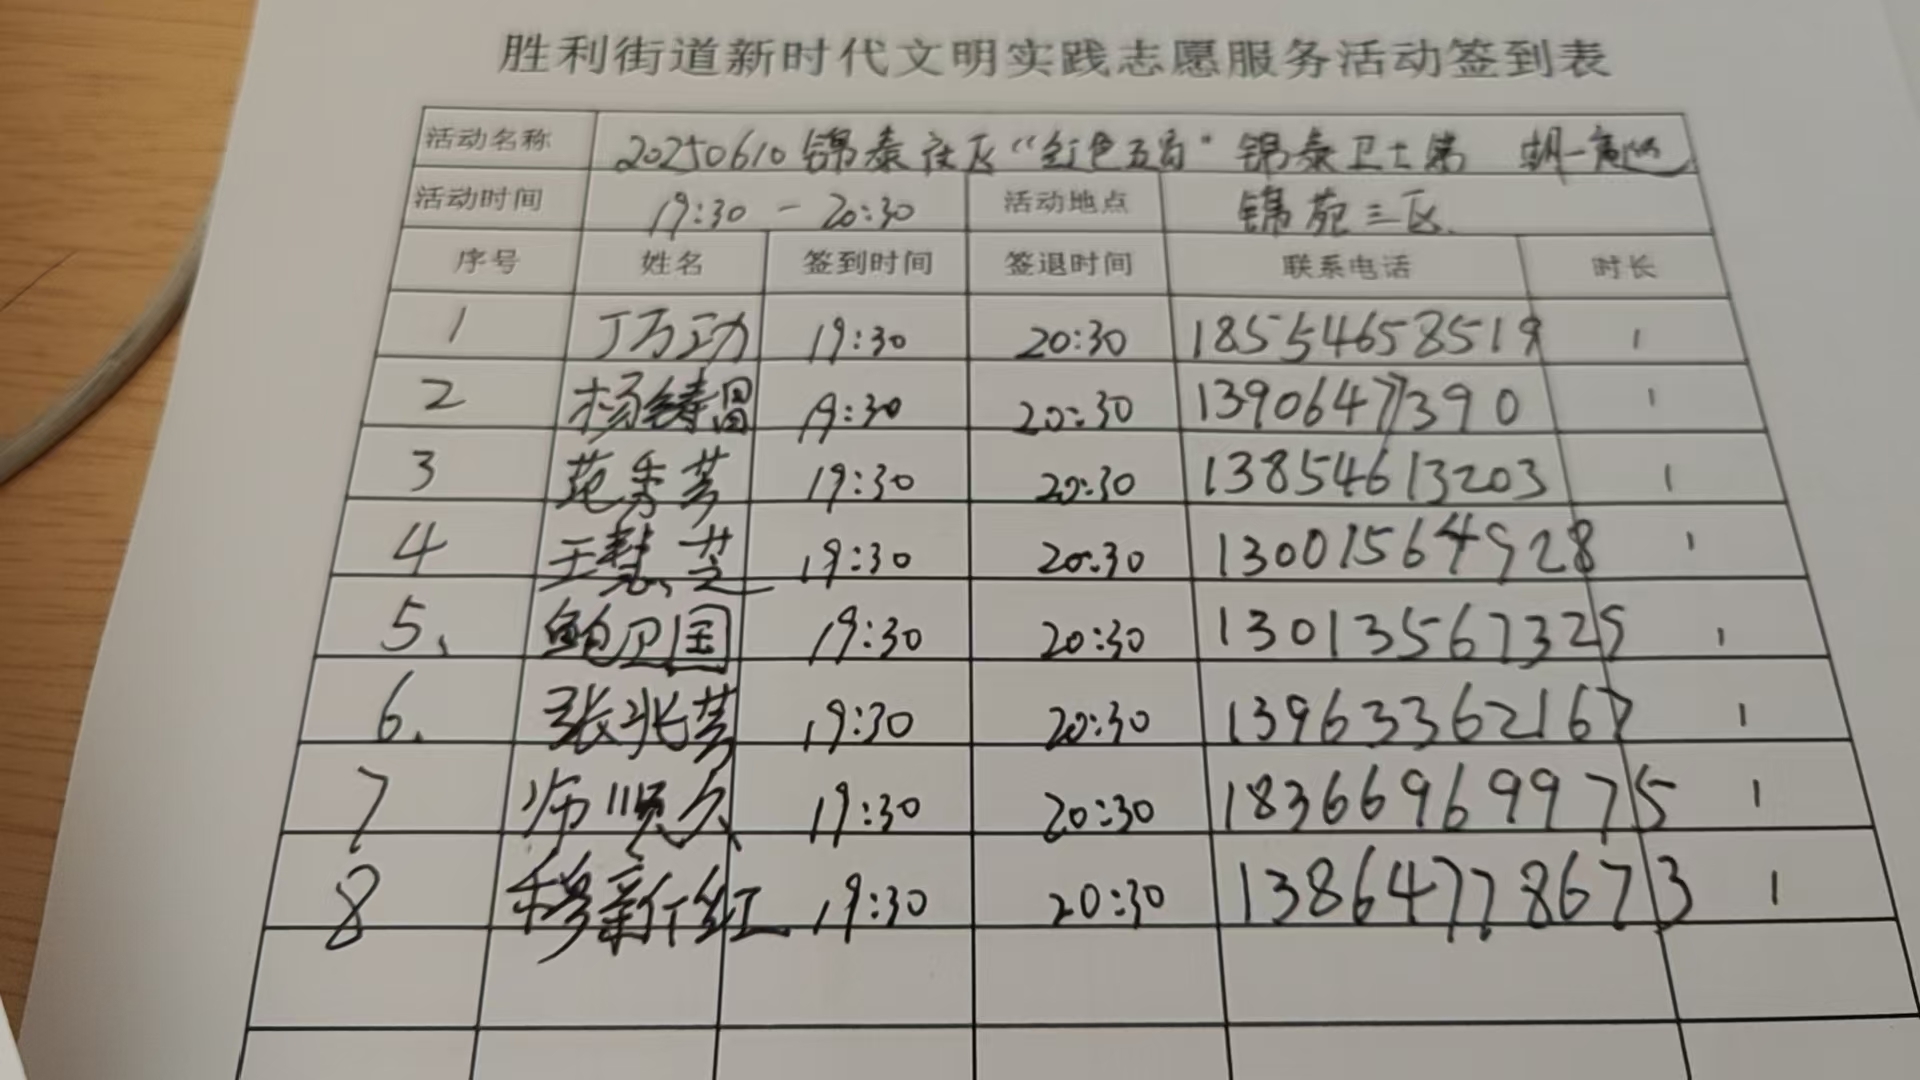 胜利街道新时代文明实践志愿服务活动签到表
活动名称 20250610锦泰社区“红色五角”锦泰卫士第
活动时间 19:30 - 20:30 活动地点 锦苑三区
序号 姓名 签到时间 签退时间 联系电话 时长
1 丁万功 19:30 20:30 18554658519 1
2 杨铸昌 19:30 20:30 1390647390 1
3 范秀芳 19:30 20:30 13854613203 1
4 王慧芝 19:30 20:30 13001564928 1
5、 鲍卫国 19:30 20:30 13013567325 1
6. 张兆芳 19:30 20:30 13963362167 1
7 师顺久 19:30 20:30 18366969975 1
8 穆新红 19:30 20:30 13864778673 1